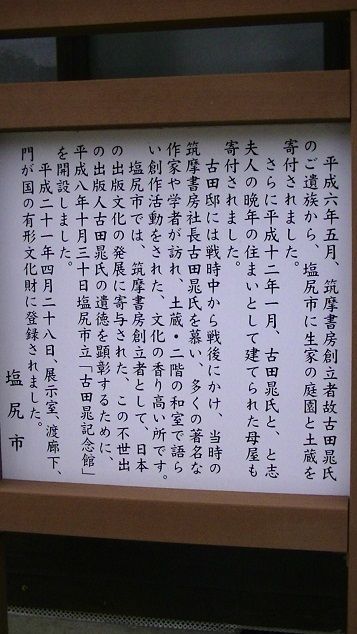 平成六年五月、筑摩書房創立者故古田晁氏
のご遺族から、塩尻市に生家の庭園と土蔵を
寄付されました。
さらに平成十二年一月、古田晁氏と、と志
夫人の晩年の住まいとして建てられた母屋も
寄付されました。
古田邸には戦時中から戦後にかけ、当時の
筑摩書房社長古田晁氏を慕い、多くの著名な
作家や学者が訪れ、土蔵・二階の和室で語ら
い創作活動をされた、文化の香り高い所です。
塩尻市では、筑摩書房創立者として、日本
の出版文化の発展に寄与された、この不世出
の出版人古田晁氏の遺徳を顕彰するために、
平成八年十月三十日塩尻市立「古田晁記念館」
を開設しました。
平成二十一年四月二十八日、展示室、渡廊下、
門が国の有形文化財に登録されました。
塩尻市